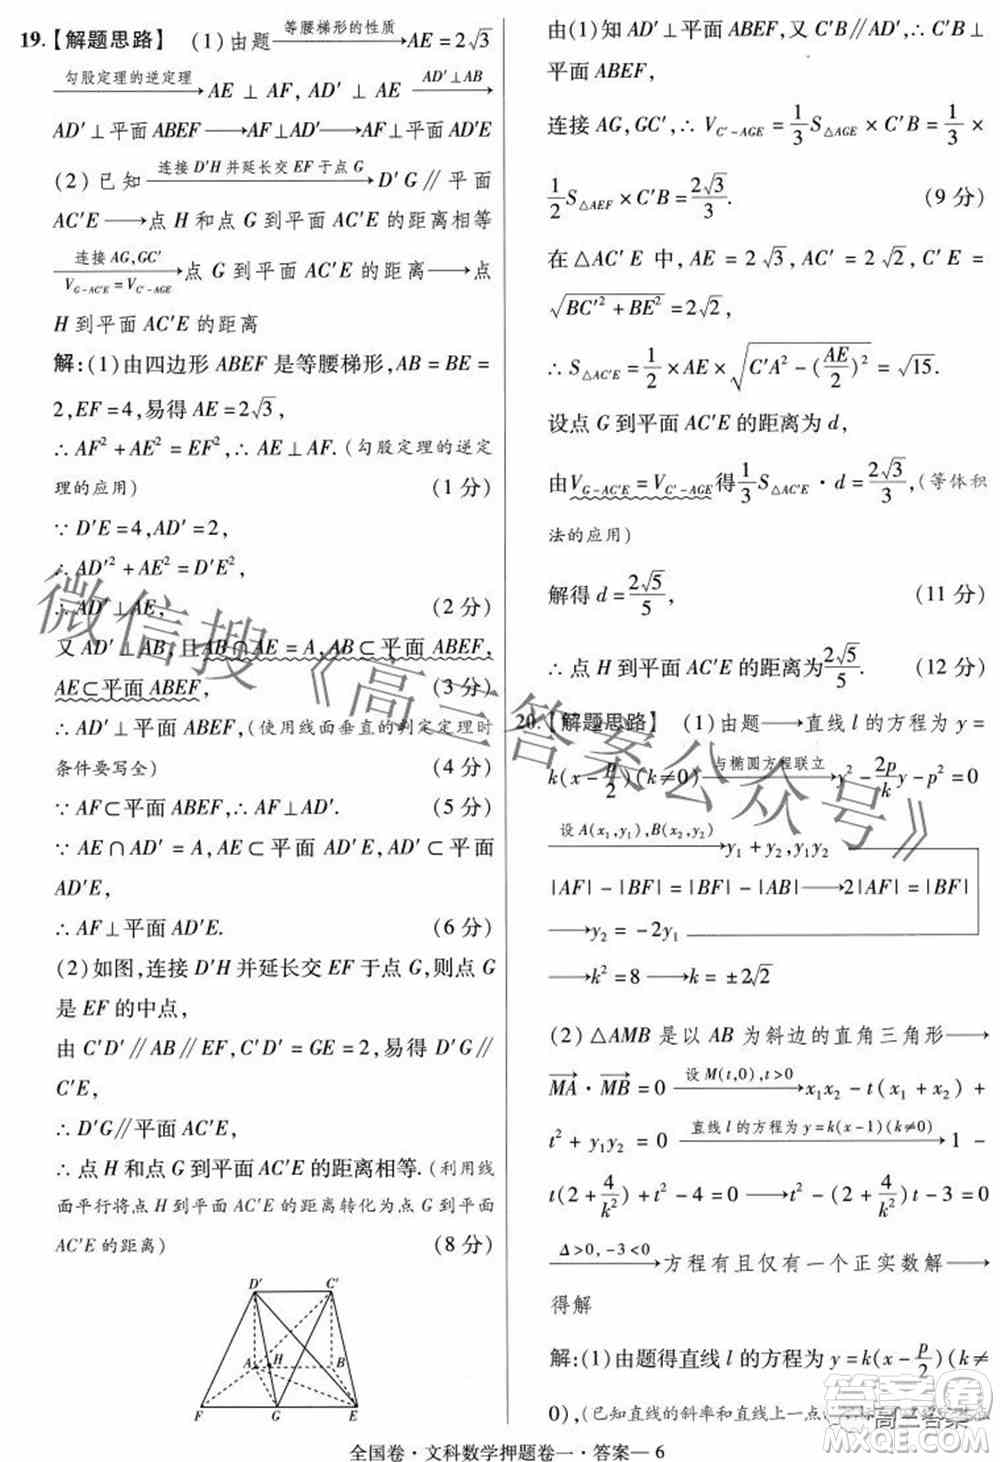 19.【解题思路】 (1)由题 —等腰梯形的性质→ AE=2√3
—勾股定理的逆定理→ AE⊥AF, AD′⊥AE —AD′⊥AB→
AD′⊥平面ABEF→AF⊥AD′→AF⊥平面AD′E
(2)已知 —连接D′H并延长交EF于点G→ D′G∥平面
AC′E→点H和点G到平面AC′E的距离相等
—连接AG,GC′ V_{G-AC′E}=V_{C′-AGE}→ 点G到平面AC′E的距离→点
H到平面AC′E的距离
解:(1)由四边形ABEF是等腰梯形,AB=BE=
2,EF=4,易得AE=2√3,
∴AF²+AE²=EF²,∴AE⊥AF.(勾股定理的逆定
理的应用) (1分)
∵D′E=4,AD′=2,
∴AD′²+AE²=D′E²,
∴AD′⊥AE, (2分)
又AD′⊥AB,且AB∩AE=A,AB⊂平面ABEF,
AE⊂平面ABEF, (3分)
∴AD′⊥平面ABEF,(使用线面垂直的判定定理时
条件要写全) (4分)
∵AF⊂平面ABEF,∴AF⊥AD′. (5分)
∵AE∩AD′=A,AE⊂平面AD′E,AD′⊂平面
AD′E,
∴AF⊥平面AD′E. (6分)
(2)如图,连接D′H并延长交EF于点G,则点G
是EF的中点,
由C′D′∥AB∥EF,C′D′=GE=2,易得D′G∥
C′E,
∴D′G∥平面AC′E,
∴点H和点G到平面AC′E的距离相等.(利用线
面平行将点H到平面AC′E的距离转化为点G到平面
AC′E的距离) (8分)
D′ C′
A H B
F G E
由(1)知AD′⊥平面ABEF,又C′B∥AD′,∴C′B⊥
平面ABEF,
连接AG,GC′,∴V_{C′-AGE}=1/3 S_{△AGE}×C′B=1/3×
1/2 S_{△AEF}×C′B=2√3/3. (9分)
在△AC′E中,AE=2√3,AC′=2√2,C′E=
√(BC′²+BE²)=2√2,
∴S_{△AC′E}=1/2×AE×√(C′A²-(AE/2)²)=√15.
设点G到平面AC′E的距离为d,
由V_{G-AC′E}=V_{C′-AGE}得1/3 S_{△AC′E}·d=2√3/3,(等体积
法的应用)
解得d=2√5/5, (11分)
∴点H到平面AC′E的距离为2√5/5. (12分)
20.【解题思路】 (1)由题→直线l的方程为y=
k(x-p/2)(k≠0) —与椭圆方程联立→ y²-2p/k y-p²=0
—设A(x₁,y₁),B(x₂,y₂)→ y₁+y₂,y₁y₂
|AF|-|BF|=|BF|-|AB|→2|AF|=|BF|
→y₂=-2y₁
→k²=8→k=±2√2
(2)△AMB是以AB为斜边的直角三角形→
MA·MB=0 —设M(t,0),t>0→ x₁x₂-t(x₁+x₂)+
t²+y₁y₂=0 —直线l的方程为y=k(x-1)(k≠0)→ 1-
t(2+4/k²)+t²-4=0→t²-(2+4/k²)t-3=0
—Δ>0,-3<0→ 方程有且仅有一个正实数解→
得解
解:(1)由题得直线l的方程为y=k(x-p/2)(k≠
0),(已知直线的斜率和直线上一点
全国卷·文科数学押题卷一·答案—6
微信搜《高三答案公众号》
高三答案
答案圈